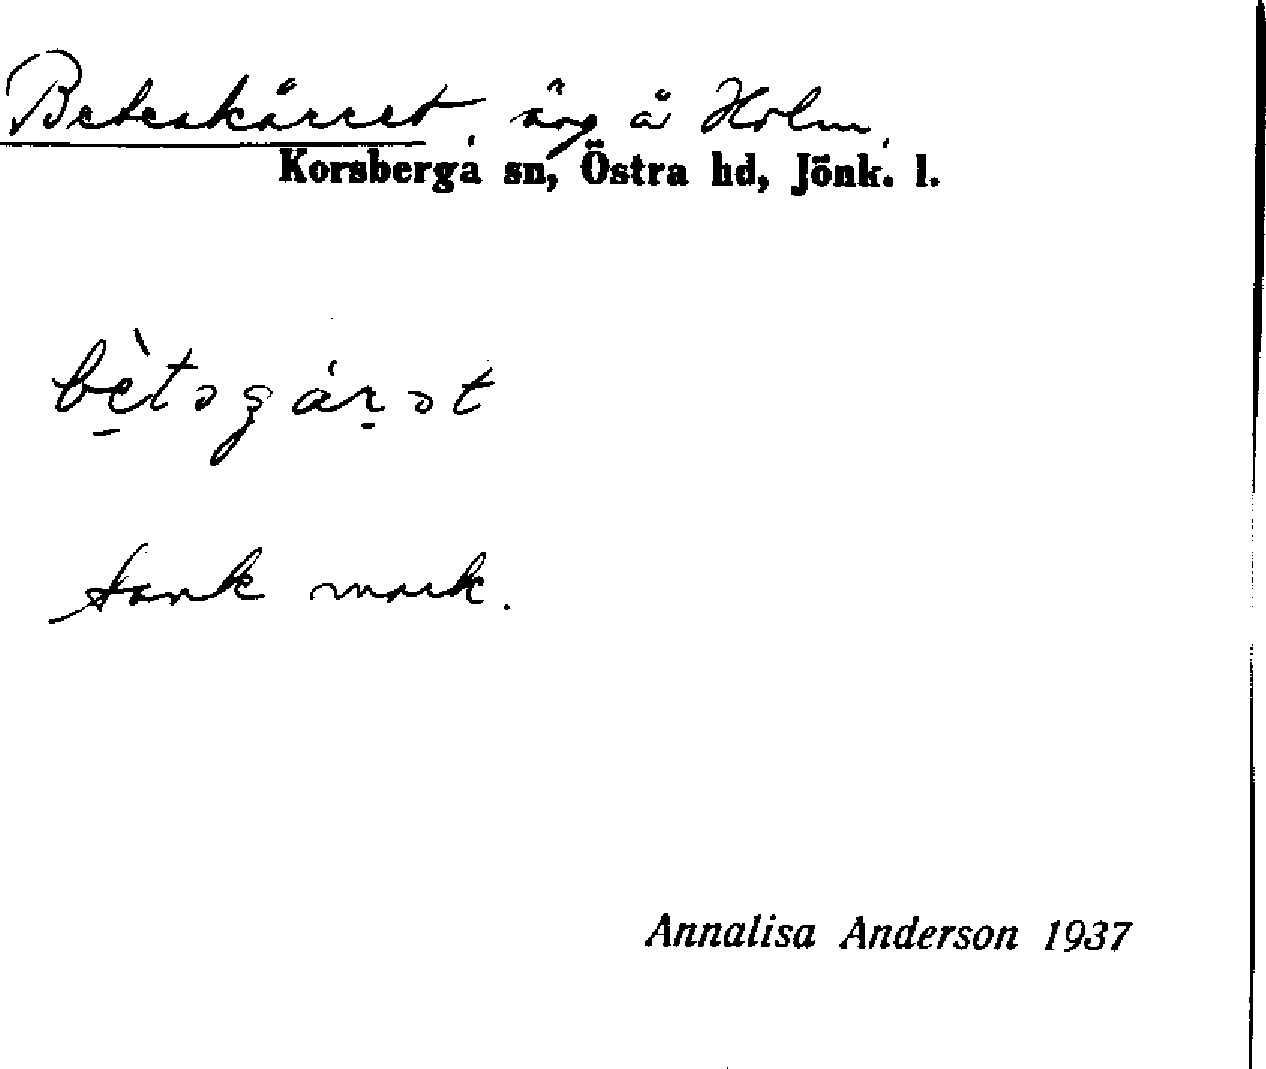 Beteskärret, äng å Holm,
Korsberga sn, Östra hd, Jönk. l.
bètəsɟárət
sank mark.
Annalisa Anderson 1937